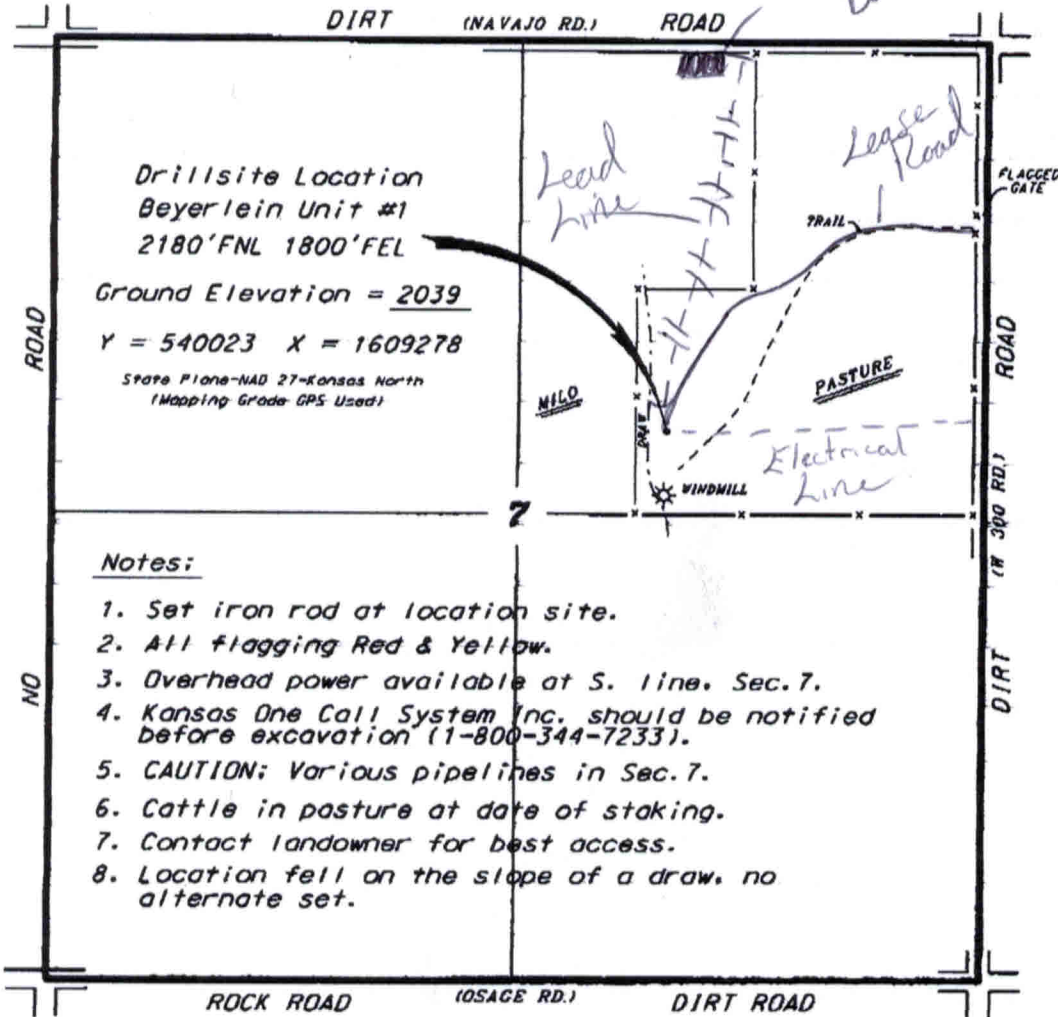 DIRT (NAVAJO RD.) ROAD
Lead
Line
Lease
Road
FLAGGED
GATE
TRAIL
Drillsite Location
Beyerlein Unit #1
2180'FNL 1800'FEL
Ground Elevation = 2039
Y = 540023 X = 1609278
State Plane-NAD 27-Kansas North
(Mapping Grade GPS Used)
NO ROAD
MILO
PASTURE
DRAW
Electrical
Line
WINDMILL
7
DIRT (W 300 RD.) ROAD
Notes:
1. Set iron rod at location site.
2. All flagging Red & Yellow.
3. Overhead power available at S. line. Sec. 7.
4. Kansas One Call System Inc. should be notified
before excavation (1-800-344-7233).
5. CAUTION: Various pipelines in Sec. 7.
6. Cattle in pasture at date of staking.
7. Contact landowner for best access.
8. Location fell on the slope of a draw. no
alternate set.
ROCK ROAD (OSAGE RD.) DIRT ROAD